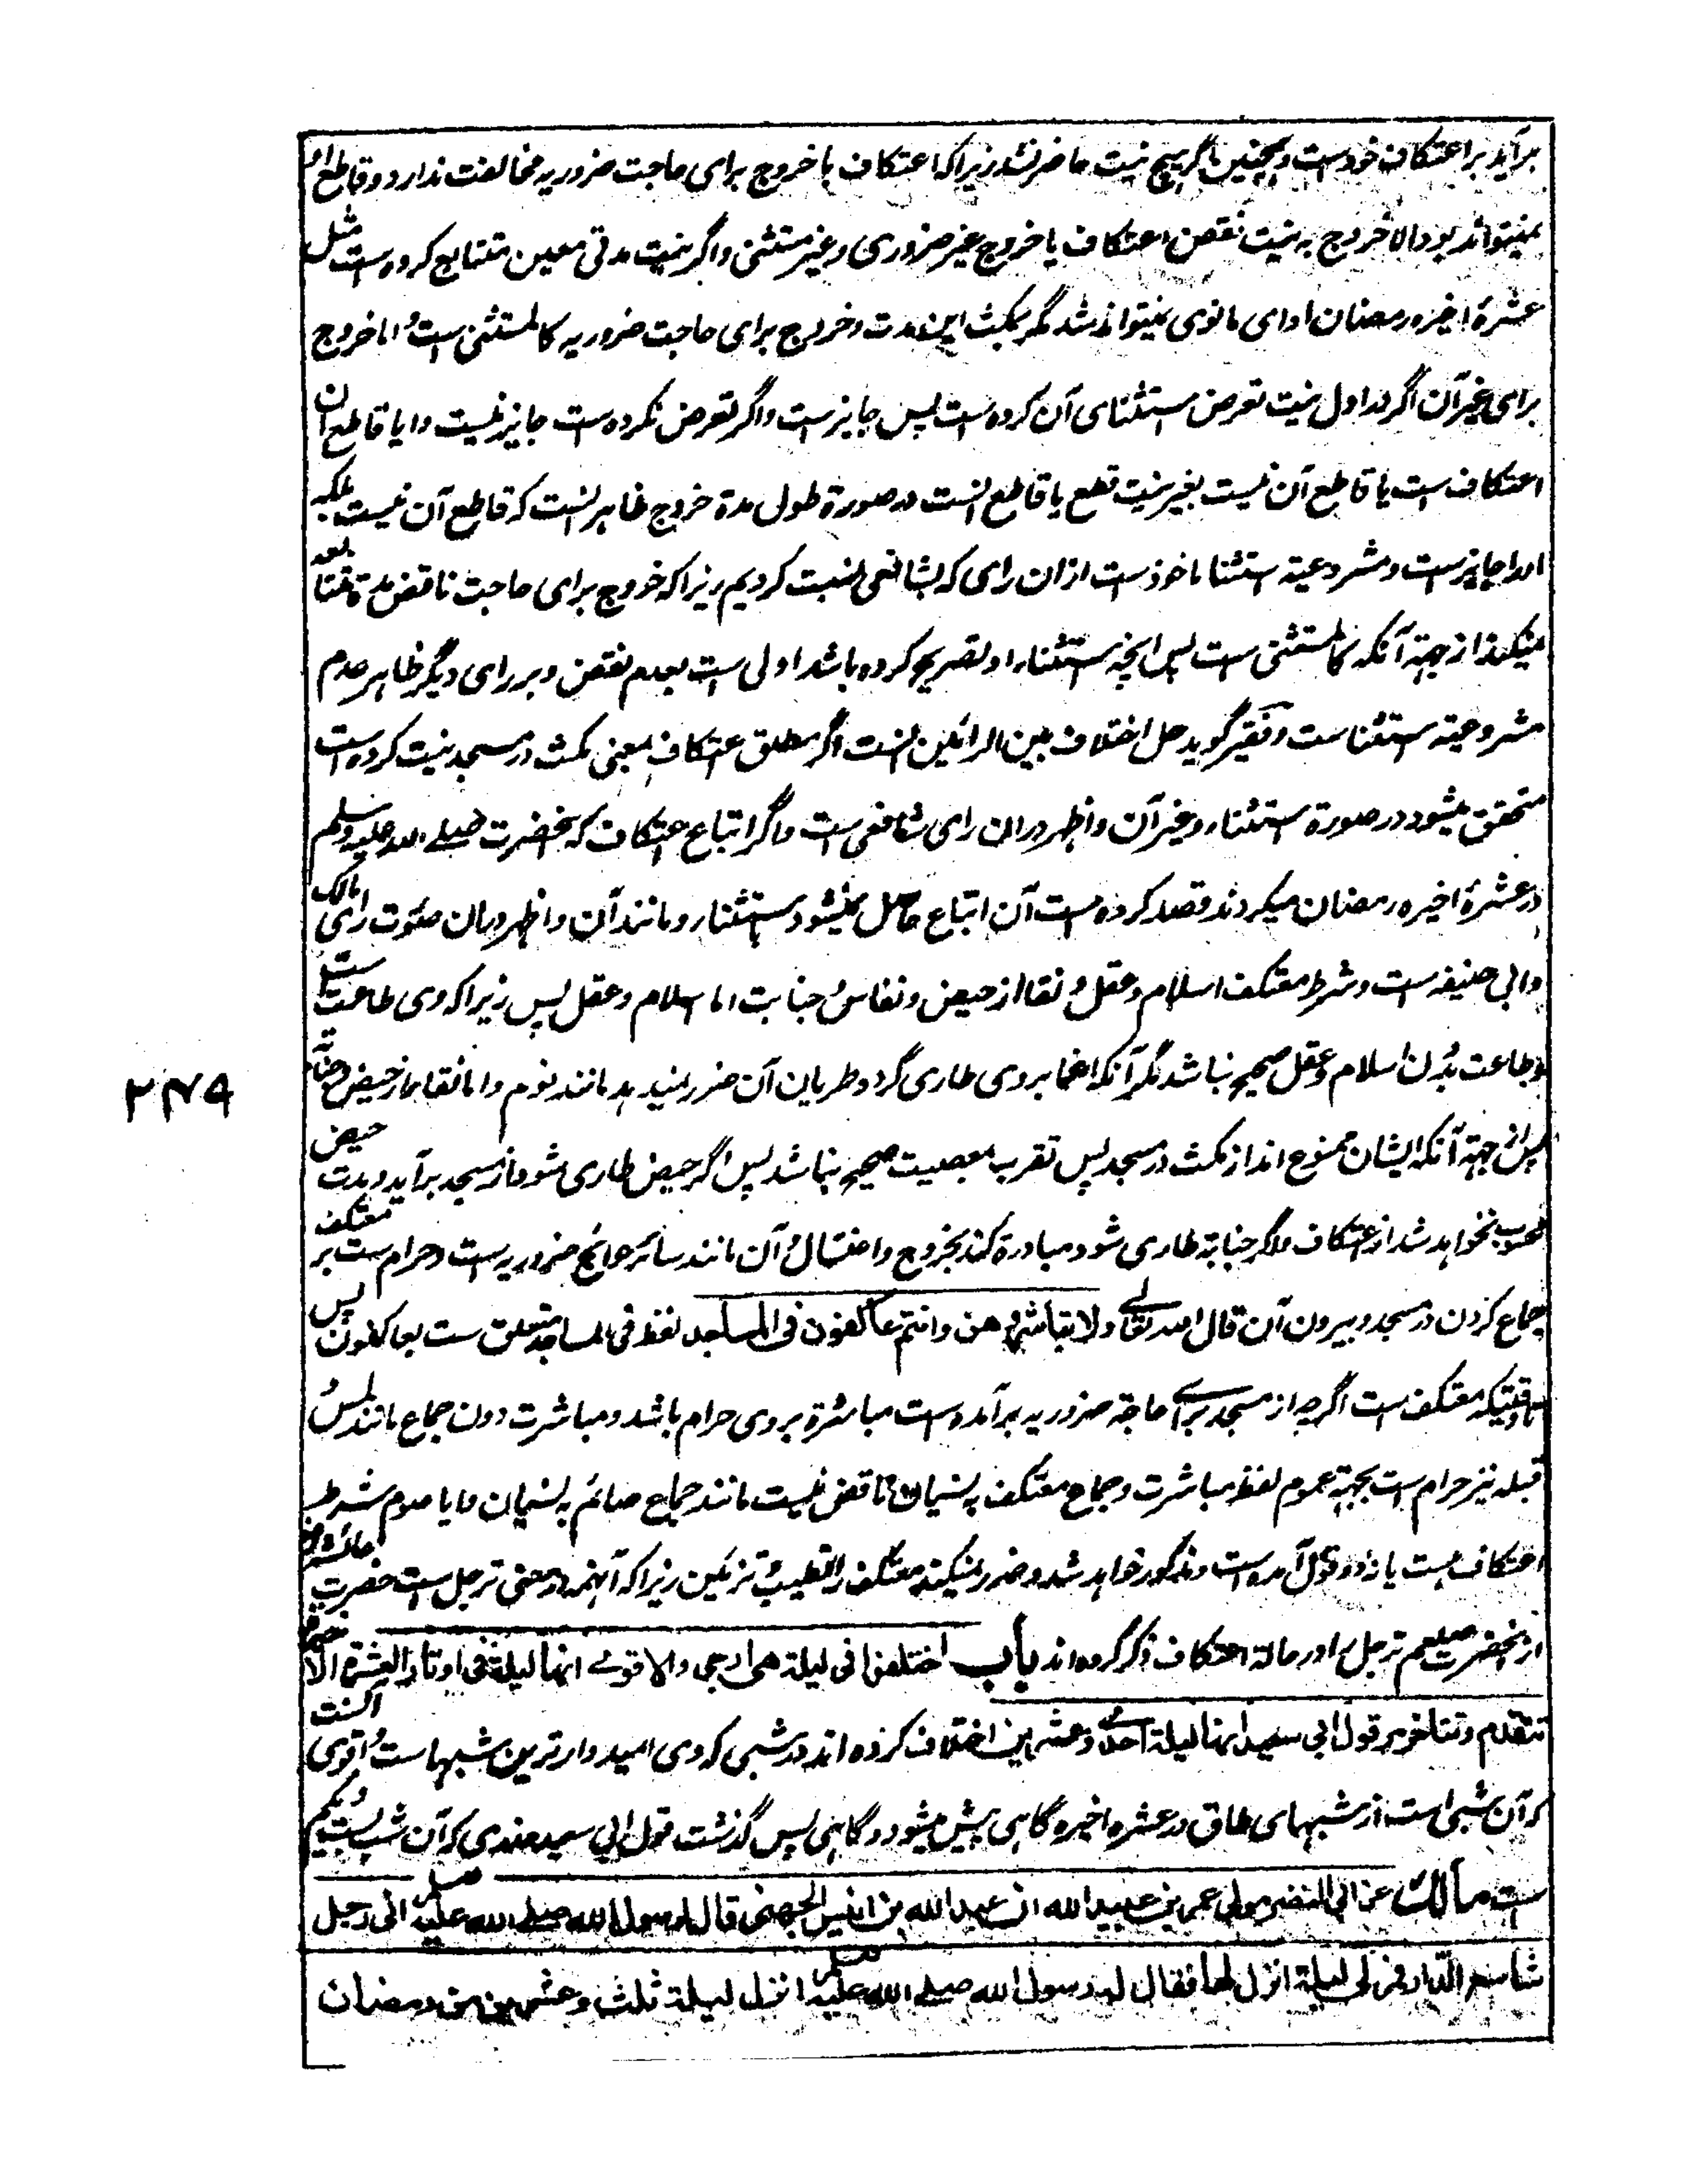 برآید بر اعتکاف خودست و همچنین اگر هیچ نیت حاضر نشد زیراکه اعتکاف با خروج برای حاجت ضروریه مخالفت ندارد و قاطع او
نمیتواند بود الا خروج به نیت نقض اعتکاف یا خروج غیر ضروری و غیر مستثنی و اگر نیت مدتی معین متتابع کرده است مثل
عشرهٔ اخیره رمضان ادای مانوی نمیتواند شد مگر بمکث این مدت و خروج برای حاجت ضروریه کالمستثنی است و اما خروج
برای غیر آن اگر در اول نیت تعرض استثنای آن کرده است پس جایزست و اگر تعرض نکرده است جایز نیست و ایا قاطع آن
اعتکاف است یا قاطع آن نیست بغیر نیت قطع یا قاطع انست در صورة طول مدة خروج ظاهر انست که قاطع آن نیست بلکه
ادا جایزست و مشروعیته استثنا ماخوذست ازان رای که بشافعی نسبت کردیم زیراکه خروج برای حاجت ناقض مدة متتابعه
نمیکند از جهة آنکه کالمستثنی است پس انچه استثناء او تصریح کرده باشد اولی است بعدم نقض و بر رای دیگر ظاهر عدم
مشروعیته استثناست و فقیر گوید حل اختلاف بین الرائین انست اگر مطلق اعتکاف بمعنی مکث در مسجد نیت کرده است
متحقق میشود در صورة استثناء و غیر آن و اظهر دران رای شافعی ست و اگر اتباع اعتکاف که آنحضرت صلے الله علیه وسلم
در عشرهٔ اخیره رمضان میکردند قصد کرده است آن اتباع حاصل نمیشود باستثناء و مانند آن و اظهر درین صورت رای مالک
و ابی حنیفه ست و شرط معتکف اسلام و عقل و نقا از حیض و نفاس و جنابت اما اسلام و عقل پس زیراکه وی طاعت ست
و طاعت بدون اسلام و عقل صحیح نباشد مگر آنکه اغما بر وی طاری گردد و طریان آن ضرر نمیدهد مانند نوم و اما نقا از حیض و جنابة
پس از جهة آنکه ایشان ممنوع اند از مکث در مسجد پس تقرب بمعصیت صحیح نباشد پس اگر حیض طاری شود از مسجد برآید و مدت حیض
محسوب نخواهد شد از اعتکاف و اگر جنابة طاری شود مبادرة کند بخروج و اغتسال و آن مانند سائر حوائج ضروریه است و حرام ست بر معتکف
جماع کردن در مسجد و بیرون آن قال الله تعالے ولا تباشروهن وانتم عاکفون فی المساجد لفظ فی المساجد متعلق ست بعاکفون پس
تا وقتیکه معتکف ست اگرچه از مسجد برای حاجة ضروریه برآمده است مباشرة بر وی حرام باشد و مباشرت دون جماع مانند لمس و
قبله نیز حرام ست بجهة عموم لفظ مباشرت و جماع معتکف به نسیان ناقض نیست مانند جماع صائم به نسیان و ایا صوم شرط
اعتکاف هست یا نه دو قول آمده است و مذکور خواهد شد و ضرر نمیکند معتکف را تطییب و تزئین زیراکه آنهمه در معنی ترجل ست حضرت عائشه رض
از آنحضرت صلعم ترجل را در حالة اعتکاف ذکر کرده اند باب اختلفوا فی لیلة هی ارجی والاقوے انها لیلة فی اوتار العشرة الاخیرة
تتقدم وتتاخر وقول ابی سعید انها لیلة احدی وعشرین اختلاف کرده اند در شبی که وی امیدوارترین شبهاست و اقوی آنست
که آن شبی است از شبهای طاق در عشره اخیره گاهی پیش میشود و گاهی پس گذشت قول ابی سعید خدری که آن شب بست و یکم
ست مالك عن ابی النضر مولی عمر بن عبید الله ان عبد الله بن انیس الجهنی قال لرسول الله صلے الله علیه وسلم انی رجل
شاسع الدار فمرنی لیلة انزل لها فقال له رسول الله صلے الله علیه وسلم انزل لیلة ثلث وعشرین من رمضان